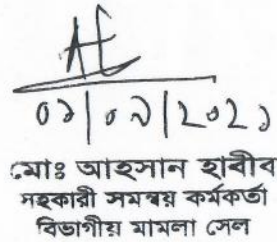 ২০২১
মোঃ আহসান হাবীব
সহকারী সমন্বয় কর্মকর্তা
বিভাগীয় মামলা সেল